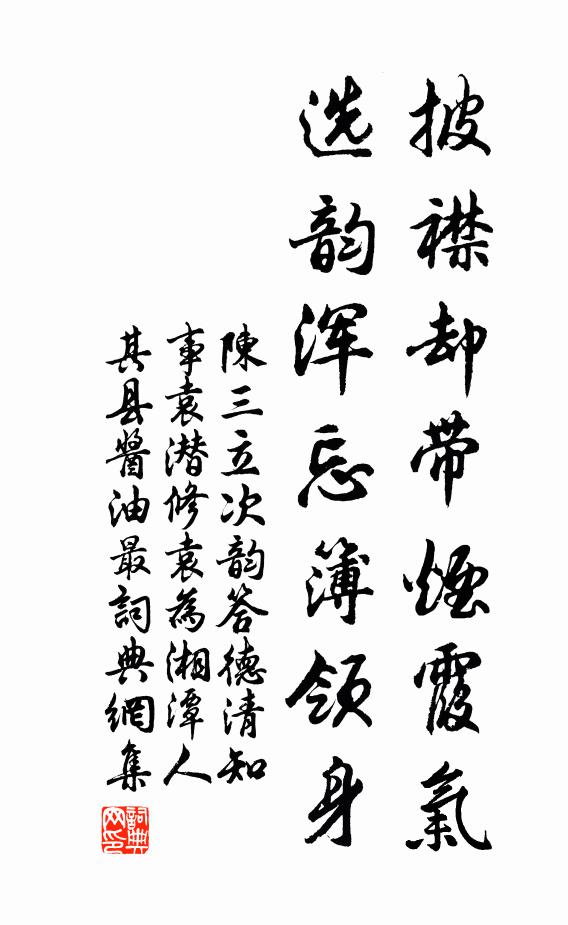 披襟却带煙霞氣
选韵浑忘簿领身
陳三立次韵答德清知
事袁潜修袁為湘潭人
其县醬油最詞典網集
詞典网印